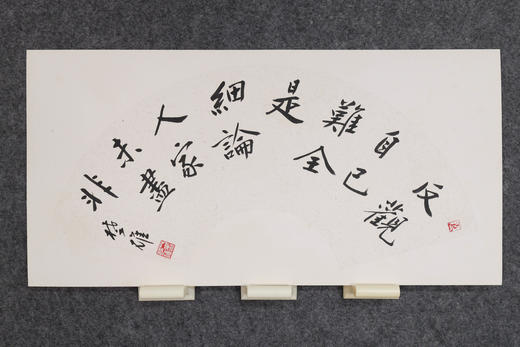 反觀
自己
難全
是
細論
人家
未盡
非